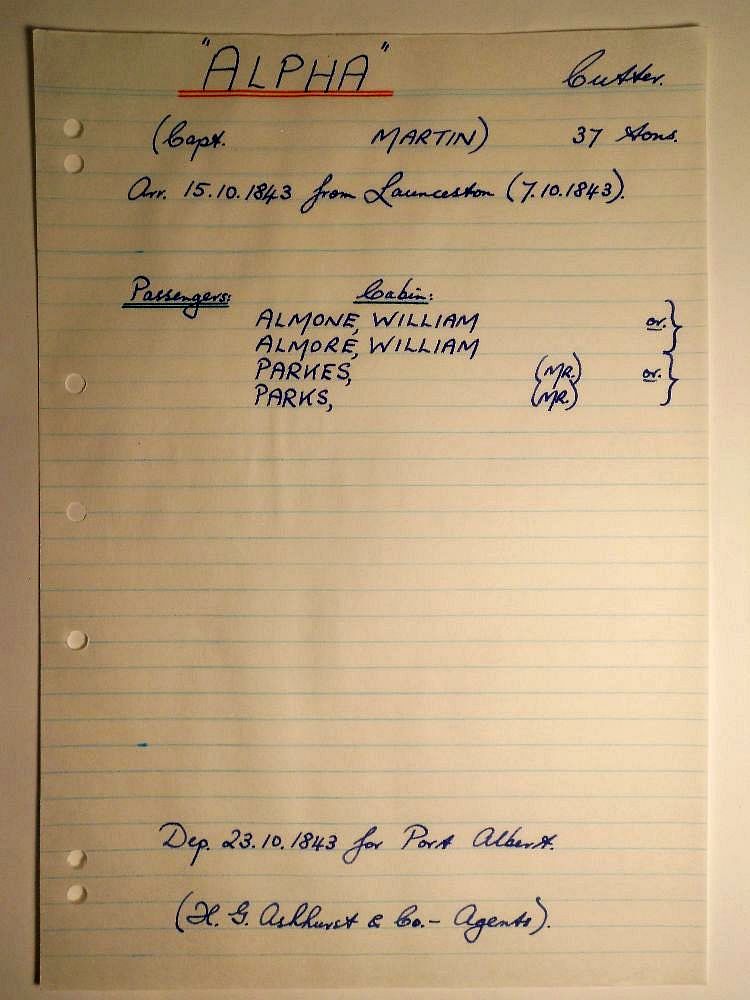 "ALPHA" Cutter.
(Capt. MARTIN) 37 tons.
Arr. 15.10.1843 from Launceston (7.10.1843).
Passengers: Cabin:
ALMONE, WILLIAM or. }
ALMORE, WILLIAM
PARKES, (MR.) or. }
PARKS, (MR.)
Dep. 23.10.1843 for Port Albert.
(H. G. Ashhurst & Co. - Agents).